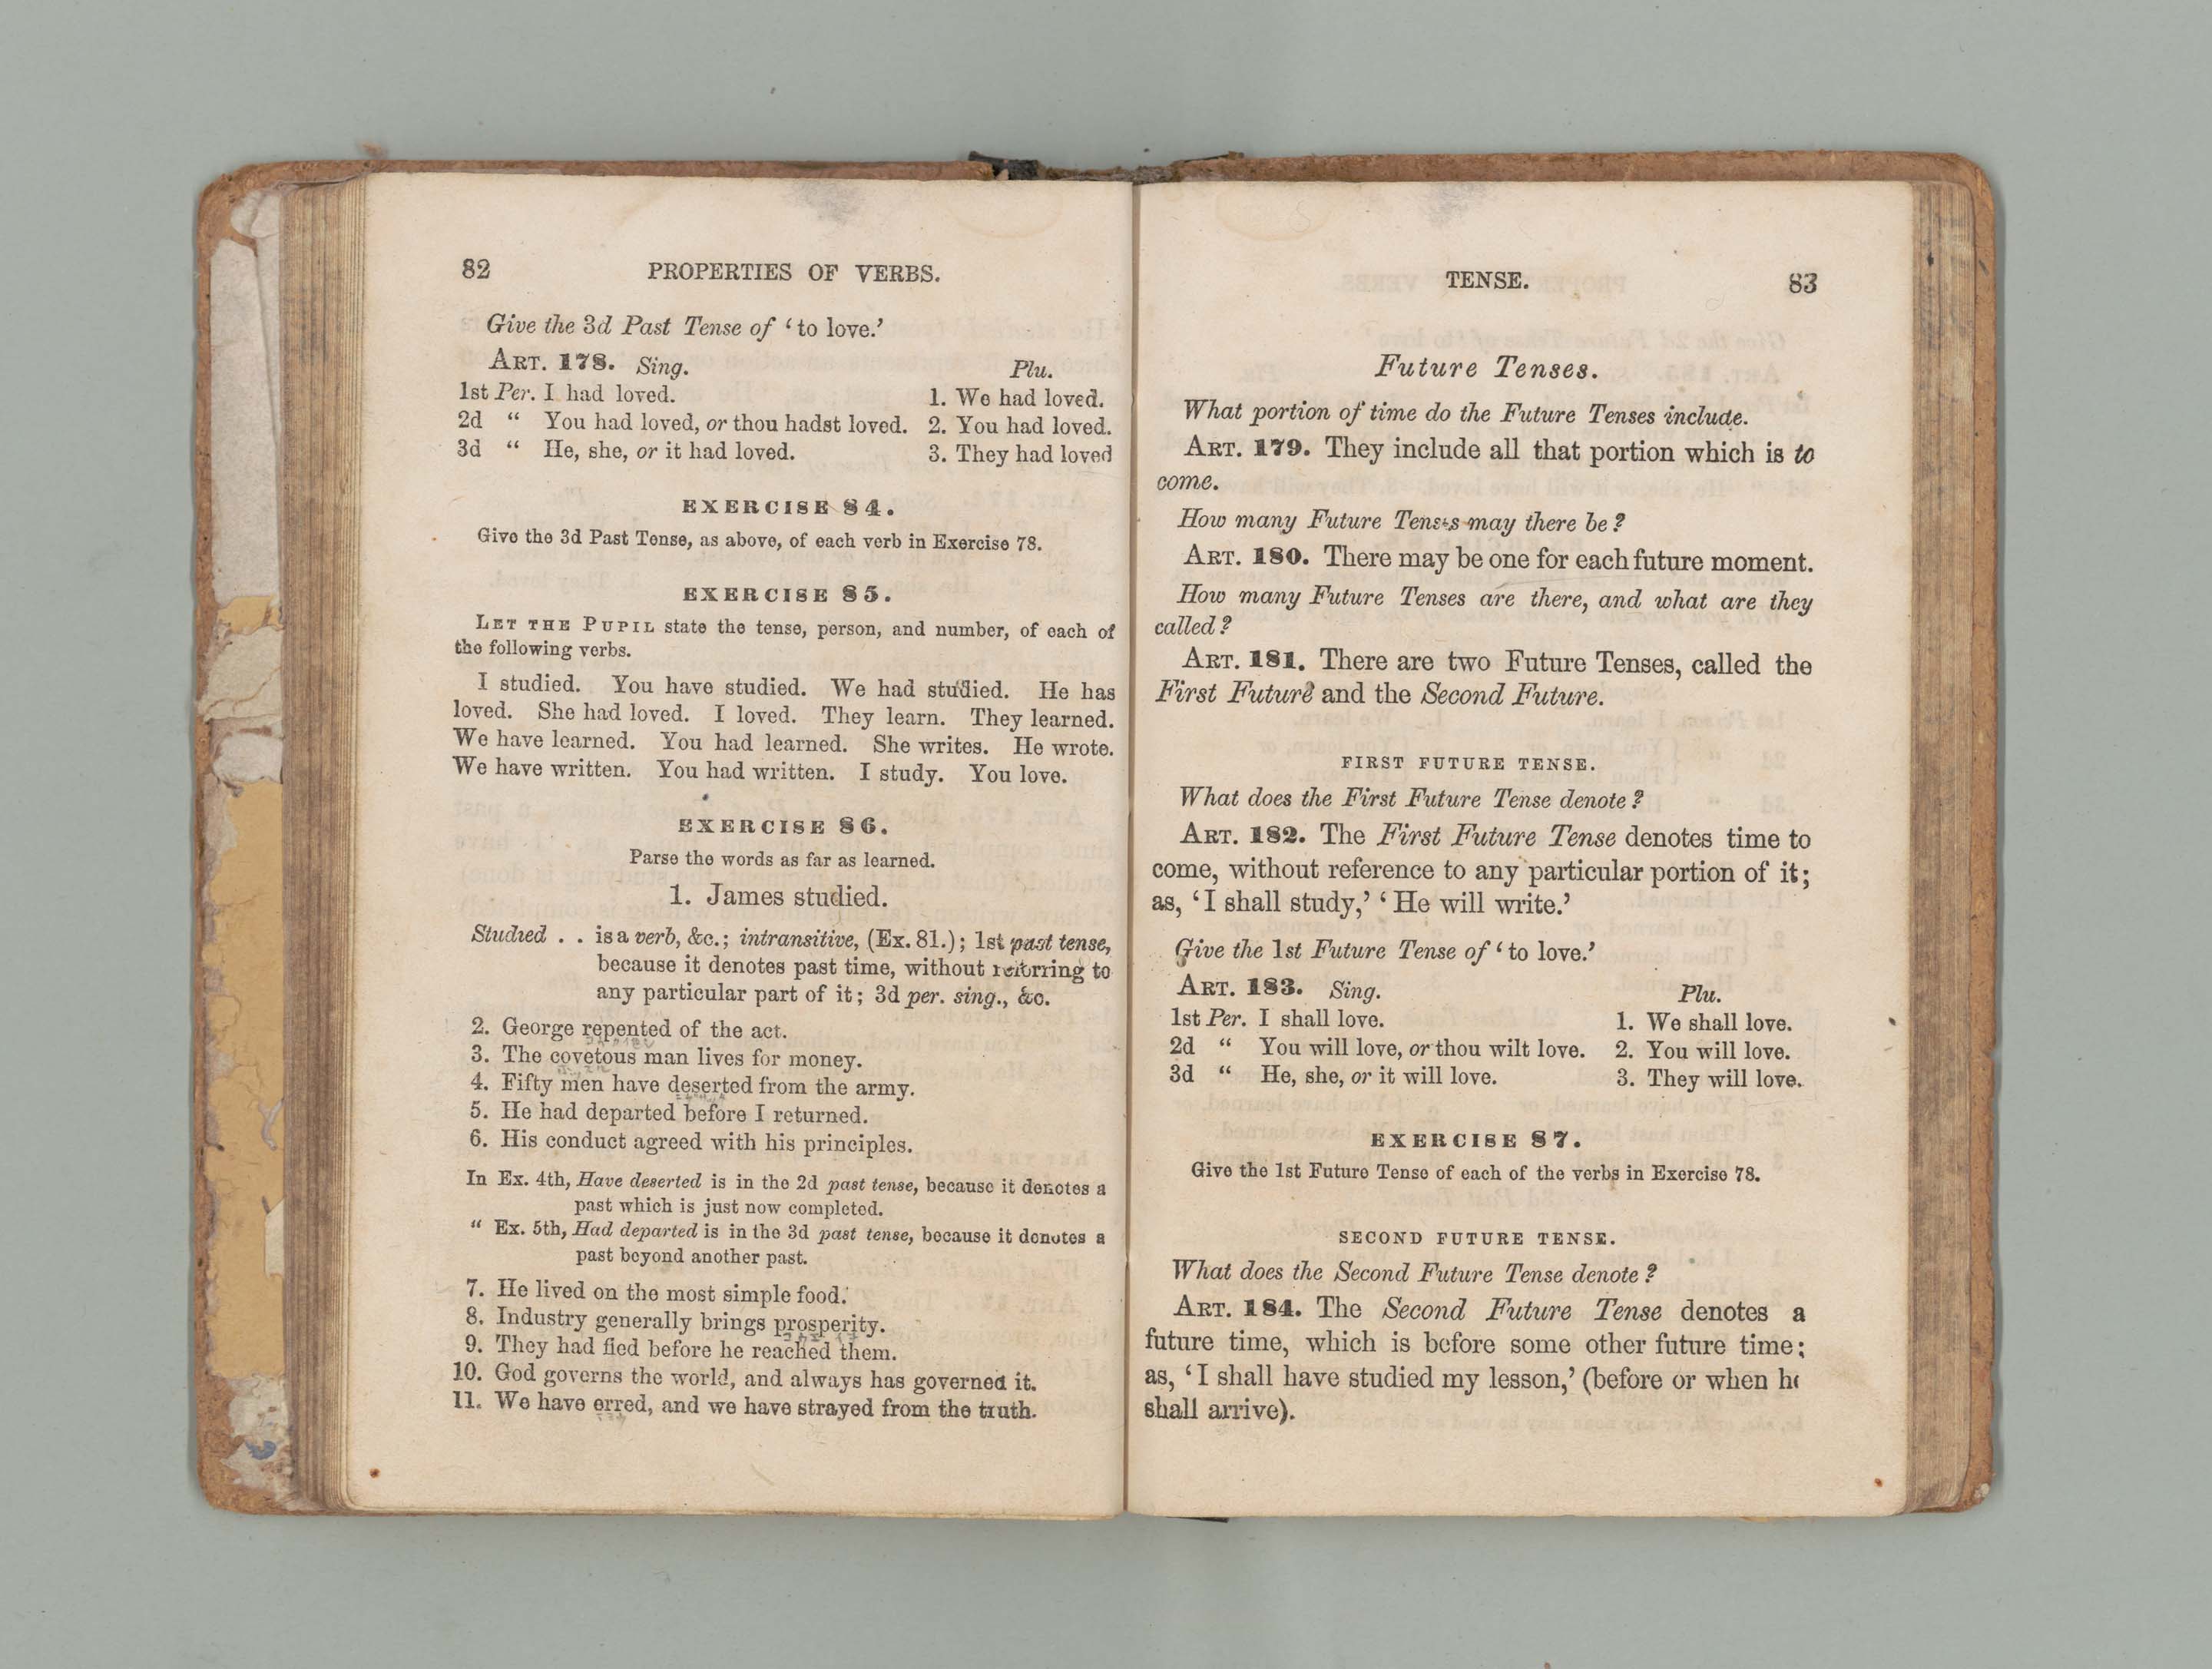 82 PROPERTIES OF VERBS.
Give the 3d Past Tense of ‘to love.’
ART. 178. Sing. Plu.
1st Per. I had loved. 1. We had loved.
2d “ You had loved, or thou hadst loved. 2. You had loved.
3d “ He, she, or it had loved. 3. They had loved
EXERCISE 84.
Give the 3d Past Tense, as above, of each verb in Exercise 78.
EXERCISE 85.
LET THE PUPIL state the tense, person, and number, of each of
the following verbs.
I studied. You have studied. We had studied. He has
loved. She had loved. I loved. They learn. They learned.
We have learned. You had learned. She writes. He wrote.
We have written. You had written. I study. You love.
EXERCISE 86.
Parse the words as far as learned.
1. James studied.
Studied . . is a verb, &c.; intransitive, (Ex. 81.); 1st past tense,
because it denotes past time, without referring to
any particular part of it; 3d per. sing., &c.
2. George repented of the act.
3. The covetous man lives for money.
4. Fifty men have deserted from the army.
5. He had departed before I returned.
6. His conduct agreed with his principles.
In Ex. 4th, Have deserted is in the 2d past tense, because it denotes a
past which is just now completed.
“ Ex. 5th, Had departed is in the 3d past tense, because it denotes a
past beyond another past.
7. He lived on the most simple food.
8. Industry generally brings prosperity.
9. They had fled before he reached them.
10. God governs the world, and always has governed it.
11. We have erred, and we have strayed from the truth.
TENSE. 83
Future Tenses.
What portion of time do the Future Tenses include.
ART. 179. They include all that portion which is to
come.
How many Future Tenses may there be?
ART. 180. There may be one for each future moment.
How many Future Tenses are there, and what are they
called?
ART. 181. There are two Future Tenses, called the
First Future and the Second Future.
FIRST FUTURE TENSE.
What does the First Future Tense denote?
ART. 182. The First Future Tense denotes time to
come, without reference to any particular portion of it;
as, ‘I shall study,’ ‘He will write.’
Give the 1st Future Tense of ‘to love.’
ART. 183. Sing. Plu.
1st Per. I shall love. 1. We shall love.
2d “ You will love, or thou wilt love. 2. You will love.
3d “ He, she, or it will love. 3. They will love.
EXERCISE 87.
Give the 1st Future Tense of each of the verbs in Exercise 78.
SECOND FUTURE TENSE.
What does the Second Future Tense denote?
ART. 184. The Second Future Tense denotes a
future time, which is before some other future time;
as, ‘I shall have studied my lesson,’ (before or when he
shall arrive).